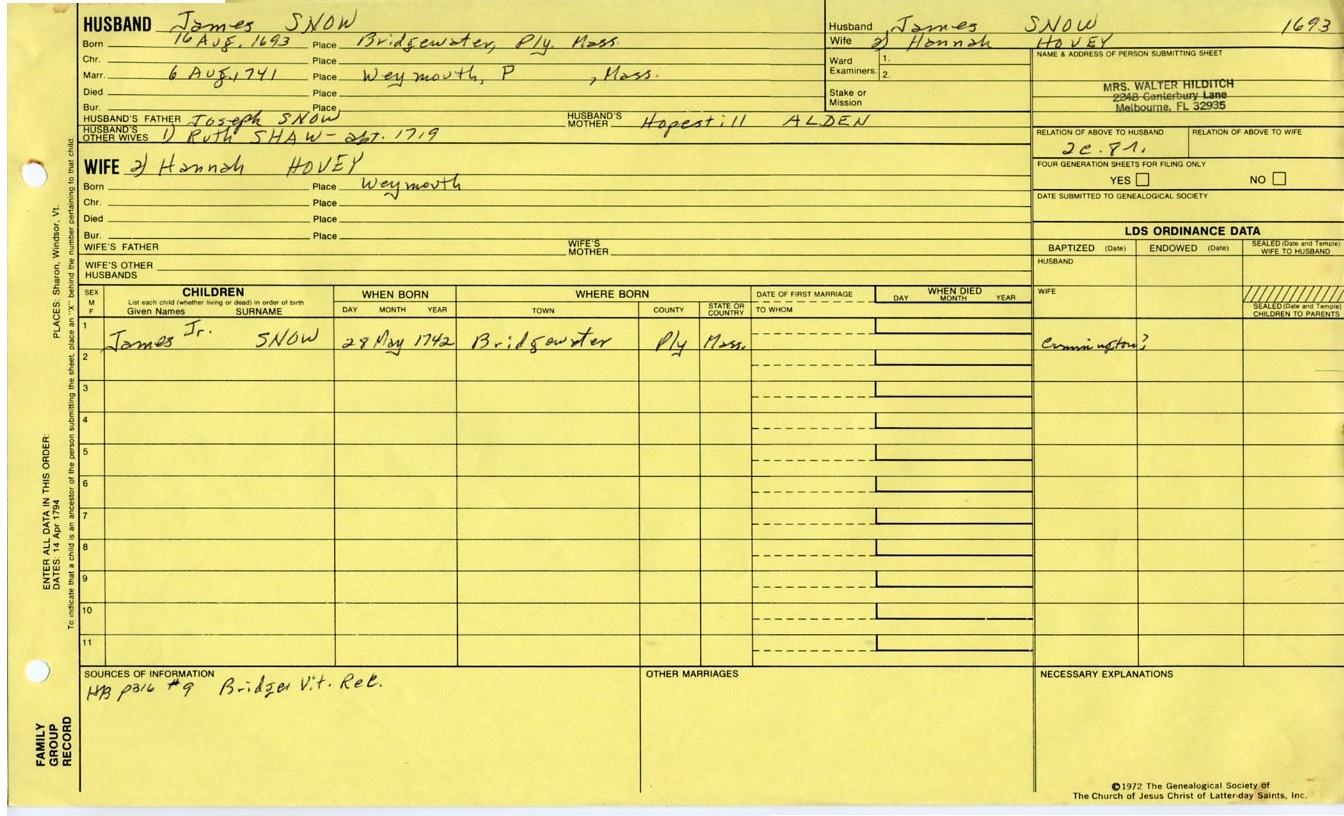 HUSBAND James SNOW
Born 16 Aug. 1693 Place Bridgewater, Ply. Mass.
Chr. Place
Marr. 6 Aug. 1741 Place Weymouth, P , Mass.
Died Place
Bur. Place
HUSBAND'S FATHER Joseph SNOW HUSBAND'S MOTHER Hopestill ALDEN
HUSBAND'S OTHER WIVES 1) Ruth SHAW - abt. 1719
WIFE 2) Hannah HOVEY
Born Place Weymouth
Chr. Place
Died Place
Bur. Place
WIFE'S FATHER WIFE'S MOTHER
WIFE'S OTHER HUSBANDS
Husband James SNOW 1693
Wife 2) Hannah HOVEY
Ward Examiners: 1.
2.
Stake or Mission
NAME & ADDRESS OF PERSON SUBMITTING SHEET
MRS. WALTER HILDITCH
2248 Canterbury Lane
Melbourne, FL 32935
RELATION OF ABOVE TO HUSBAND RELATION OF ABOVE TO WIFE
2c.8r.
FOUR GENERATION SHEETS FOR FILING ONLY
YES NO
DATE SUBMITTED TO GENEALOGICAL SOCIETY
LDS ORDINANCE DATA
BAPTIZED (Date) ENDOWED (Date) SEALED (Date and Temple) WIFE TO HUSBAND
HUSBAND
WIFE
SEALED (Date and Temple) CHILDREN TO PARENTS
SEX M F
CHILDREN
List each child (whether living or dead) in order of birth
Given Names SURNAME
WHEN BORN
DAY MONTH YEAR
WHERE BORN
TOWN COUNTY STATE OR COUNTRY
DATE OF FIRST MARRIAGE
TO WHOM
WHEN DIED
DAY MONTH YEAR
1 James Jr. SNOW 28 May 1742 Bridgewater Ply Mass. Cummington?
2
3
4
5
6
7
8
9
10
11
SOURCES OF INFORMATION
HB p316 #9 Bridgew Vit. Rec.
OTHER MARRIAGES
NECESSARY EXPLANATIONS
©1972 The Genealogical Society of
The Church of Jesus Christ of Latter-day Saints, Inc.
FAMILY GROUP RECORD
ENTER ALL DATA IN THIS ORDER:
DATES: 14 Apr 1794
PLACES: Sharon, Windsor, Vt.
To indicate that a child is an ancestor of the person submitting the sheet, place an "X" behind the number pertaining to that child.